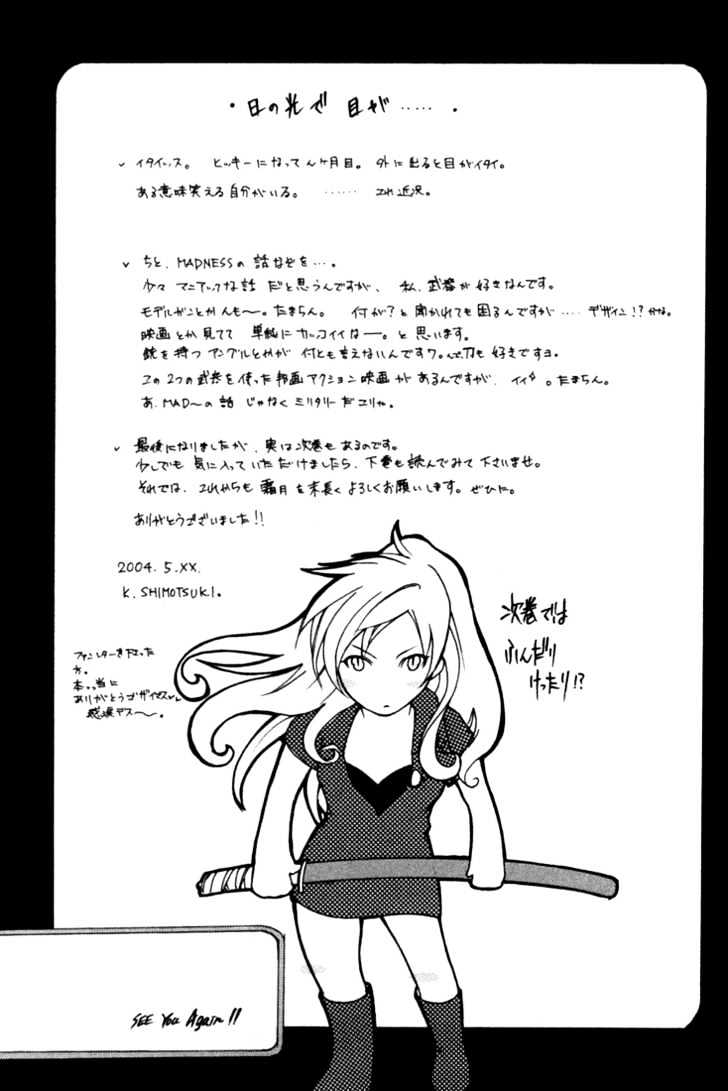 ・日の光で 目が……・
✓ イタイッス。 ヒッキーになってんヶ月目。外に出ると目がイタイ。
ある意味笑える自分がいる。 …… これ近況。
✓ ちと、MADNESSの話なぞを…。
少々マニアックな話だと思うんですが、私、武器が好きなんです。
モデルガンとかんも〜。たまらん。 何が?と聞かれても困るんですが…. デザイン!?かな。
映画とか見てて 単純にカッコイイなー。と思います。
銃を持つアングルとかが何とも言えないんですワ。んで刀も好きですヨ。
この2つの武器を使った邦画アクション映画があるんですが、イイ。たまらん。
あ、MAD〜の話じゃなくミリタリーだこりゃ。
✓ 最後になりましたが、実は次巻もあるのです。
少しでも気に入っていただけましたら、下巻も読んでみて下さいませ。
それでは、これからも霜月を末長くよろしくお願いします。ぜひに。
ありがとうございました!!
2004.5.XX.
K.SHIMOTSUKI.
ファンレターを下さった
方。
本っ当に
ありがとうゴザイマス
感涙デスー〜。
次巻では
ふんだり
けったり!?
SEE You Again!!